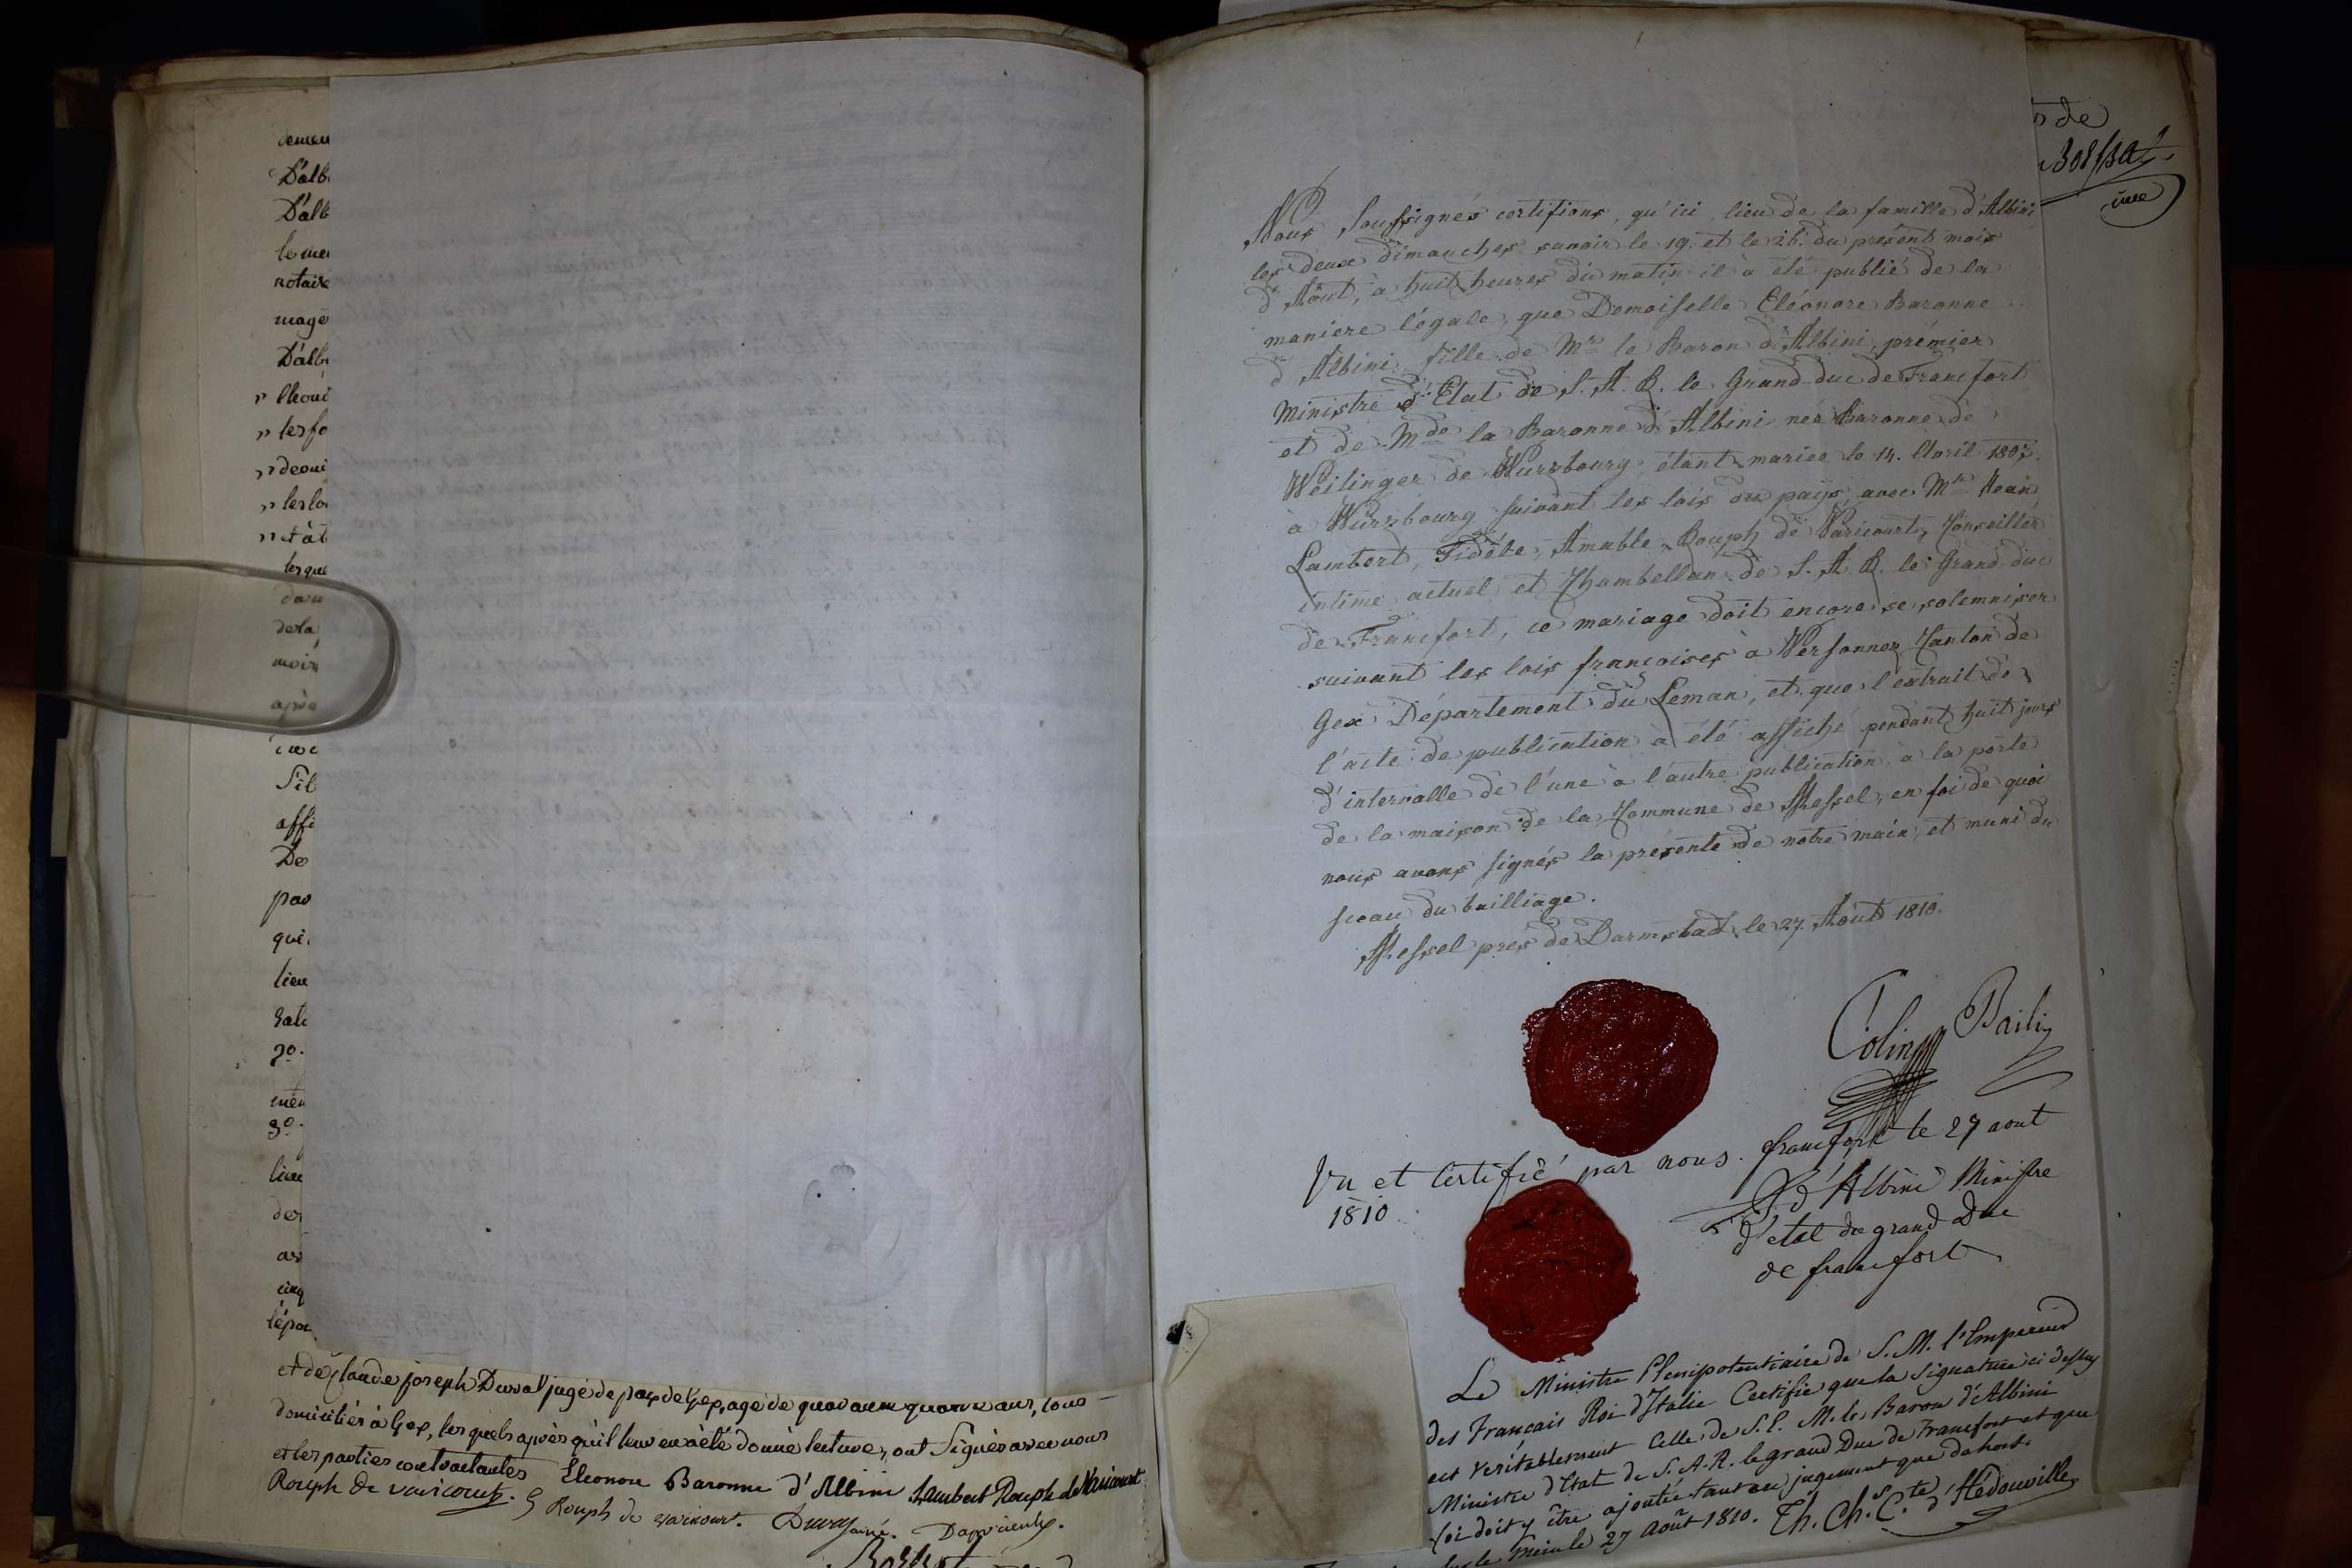 D'alb
D'alb
notaire
mage
D'alb
" les fo
" et à
de la
moin
après
Sil
affi
De
pao
qui
lieu
2º.
3º.
et de Claude joseph Duval juge de paix de Gex, agé de quarante quatre ans, tous
domiciliés à Gex, lesquels après qu'il leur en a été donné lecture, ont Signés avec nous
et les parties contractantes Eleonore Baronne d'Albini Lambert Rouph de Varicourt
Rouph de varicourt. Rouph de varicourt.
de
Nous Soussignés certifions, qu'ici, lieu de la famille d'Albini
les deux dimanches savoir le 19. et le 26. du présent mois
d'Août, à huit heures du matin il à été publié de la
maniere légale, que Demoiselle Eléonore Baronne
d'Albini fille de Mr le Baron d'Albini prémier
Ministre d'Etat de S. A. R. le Grand-duc de Francfort
et de Mde la Baronne d'Albini neé Baronne de
Weilinger de Wurzbourg étant mariée le 14. Avril 1807.
à Wurzbourg suivant les lois du pays avec Mr Jean
Lambert, Fidèle, Amable, Rouph de Varicourt, Conseillér
intime actuel et Chambellan de S. A. R. le Grand-duc
de Francfort, ce mariage doit encore se solemniser
suivant les lois françoises à Versonnex Canton de
Gex Département du Leman, et que l'extrait de
l'acte de publication à été affiché pendant huit jours
d'intervalle de l'une à l'autre publication, à la porte
de la maison de la Commune de Messel, en foi de quoi
nous avons signés la présente de notre main, et muni du
sceau du bailliage.
Messel près de Darmstad le 27. Août 1810.
Colin Baili
Vu et certifié par nous. francfort le 27 aout
1810
d'Albini Ministre
d'etat du grand Duc
de francfort
Le Ministre Plenipotentiaire de S. M. l'Empereur
des Francais Roi d'Italie Certifie que la Signature ci dessus
est véritablement Celle de S. E. M. le Baron d'Albini
Ministre d'Etat de S. A. R. le grand Duc de Francfort et que
foi doit y être ajoutée tant en jugement que dehors.
le Mein le 27 Août 1810. Th. Ch.s C.te d'Hédouville